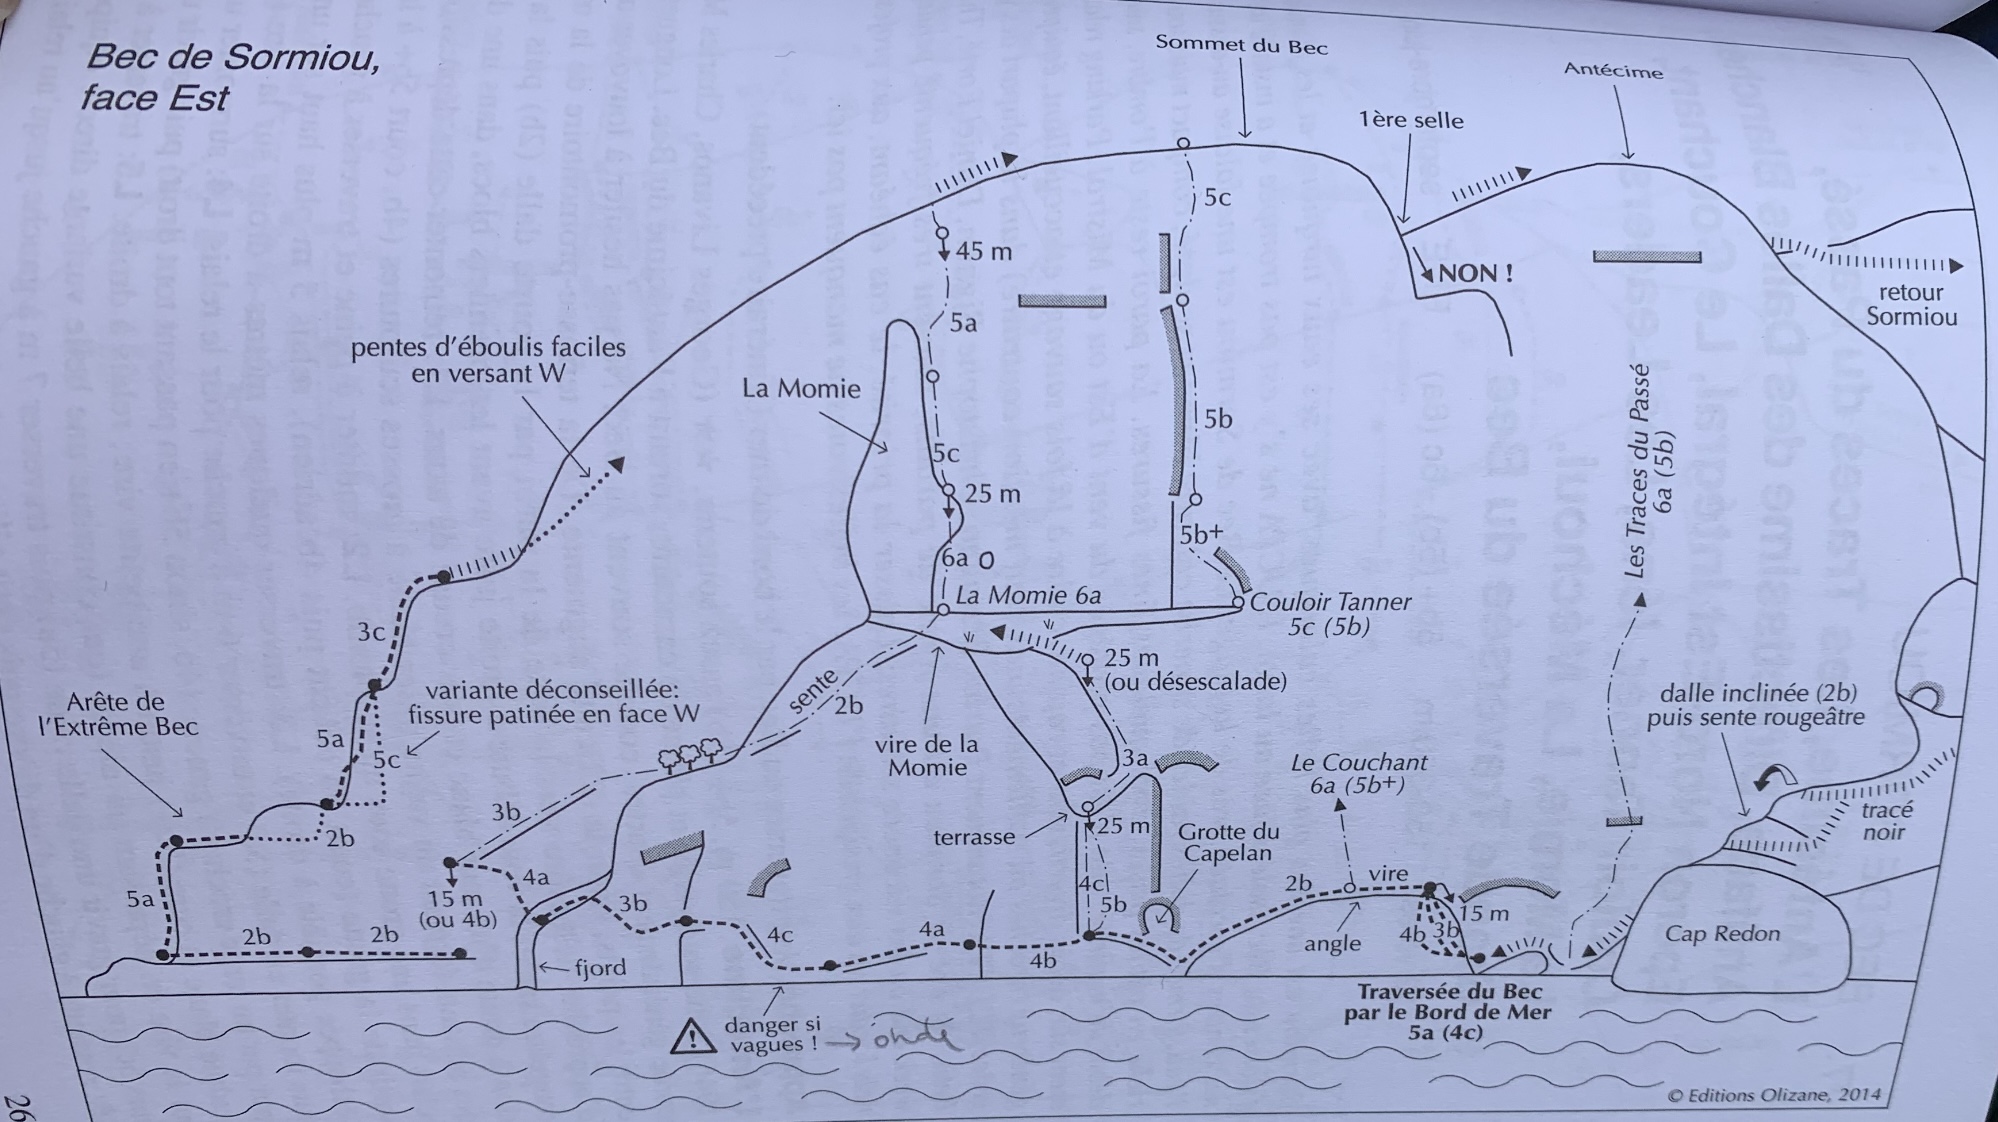 Bec de Sormiou,
face Est
Sommet du Bec
Antécime
1ère selle
5c
45 m
NON !
retour
Sormiou
5a
pentes d'éboulis faciles
en versant W
La Momie
5b
Les Traces du Passé
6a (5b)
5c
25 m
5b+
6a O
La Momie 6a
Couloir Tanner
5c (5b)
3c
25 m
(ou désescalade)
sente
2b
Arête de
l'Extrême Bec
variante déconseillée:
fissure patinée en face W
5a
5c
vire de la
Momie
3a
dalle inclinée (2b)
puis sente rougeâtre
Le Couchant
6a (5b+)
3b
2b
terrasse
25 m
Grotte du
Capelan
tracé
noir
5a
4a
15 m
(ou 4b)
3b
4c
5b
2b
vire
15 m
2b
2b
4c
4a
4b
angle
4b
3b
Cap Redon
fjord
Traversée du Bec
par le Bord de Mer
5a (4c)
danger si
vagues !
→ onde
© Editions Olizane, 2014
26